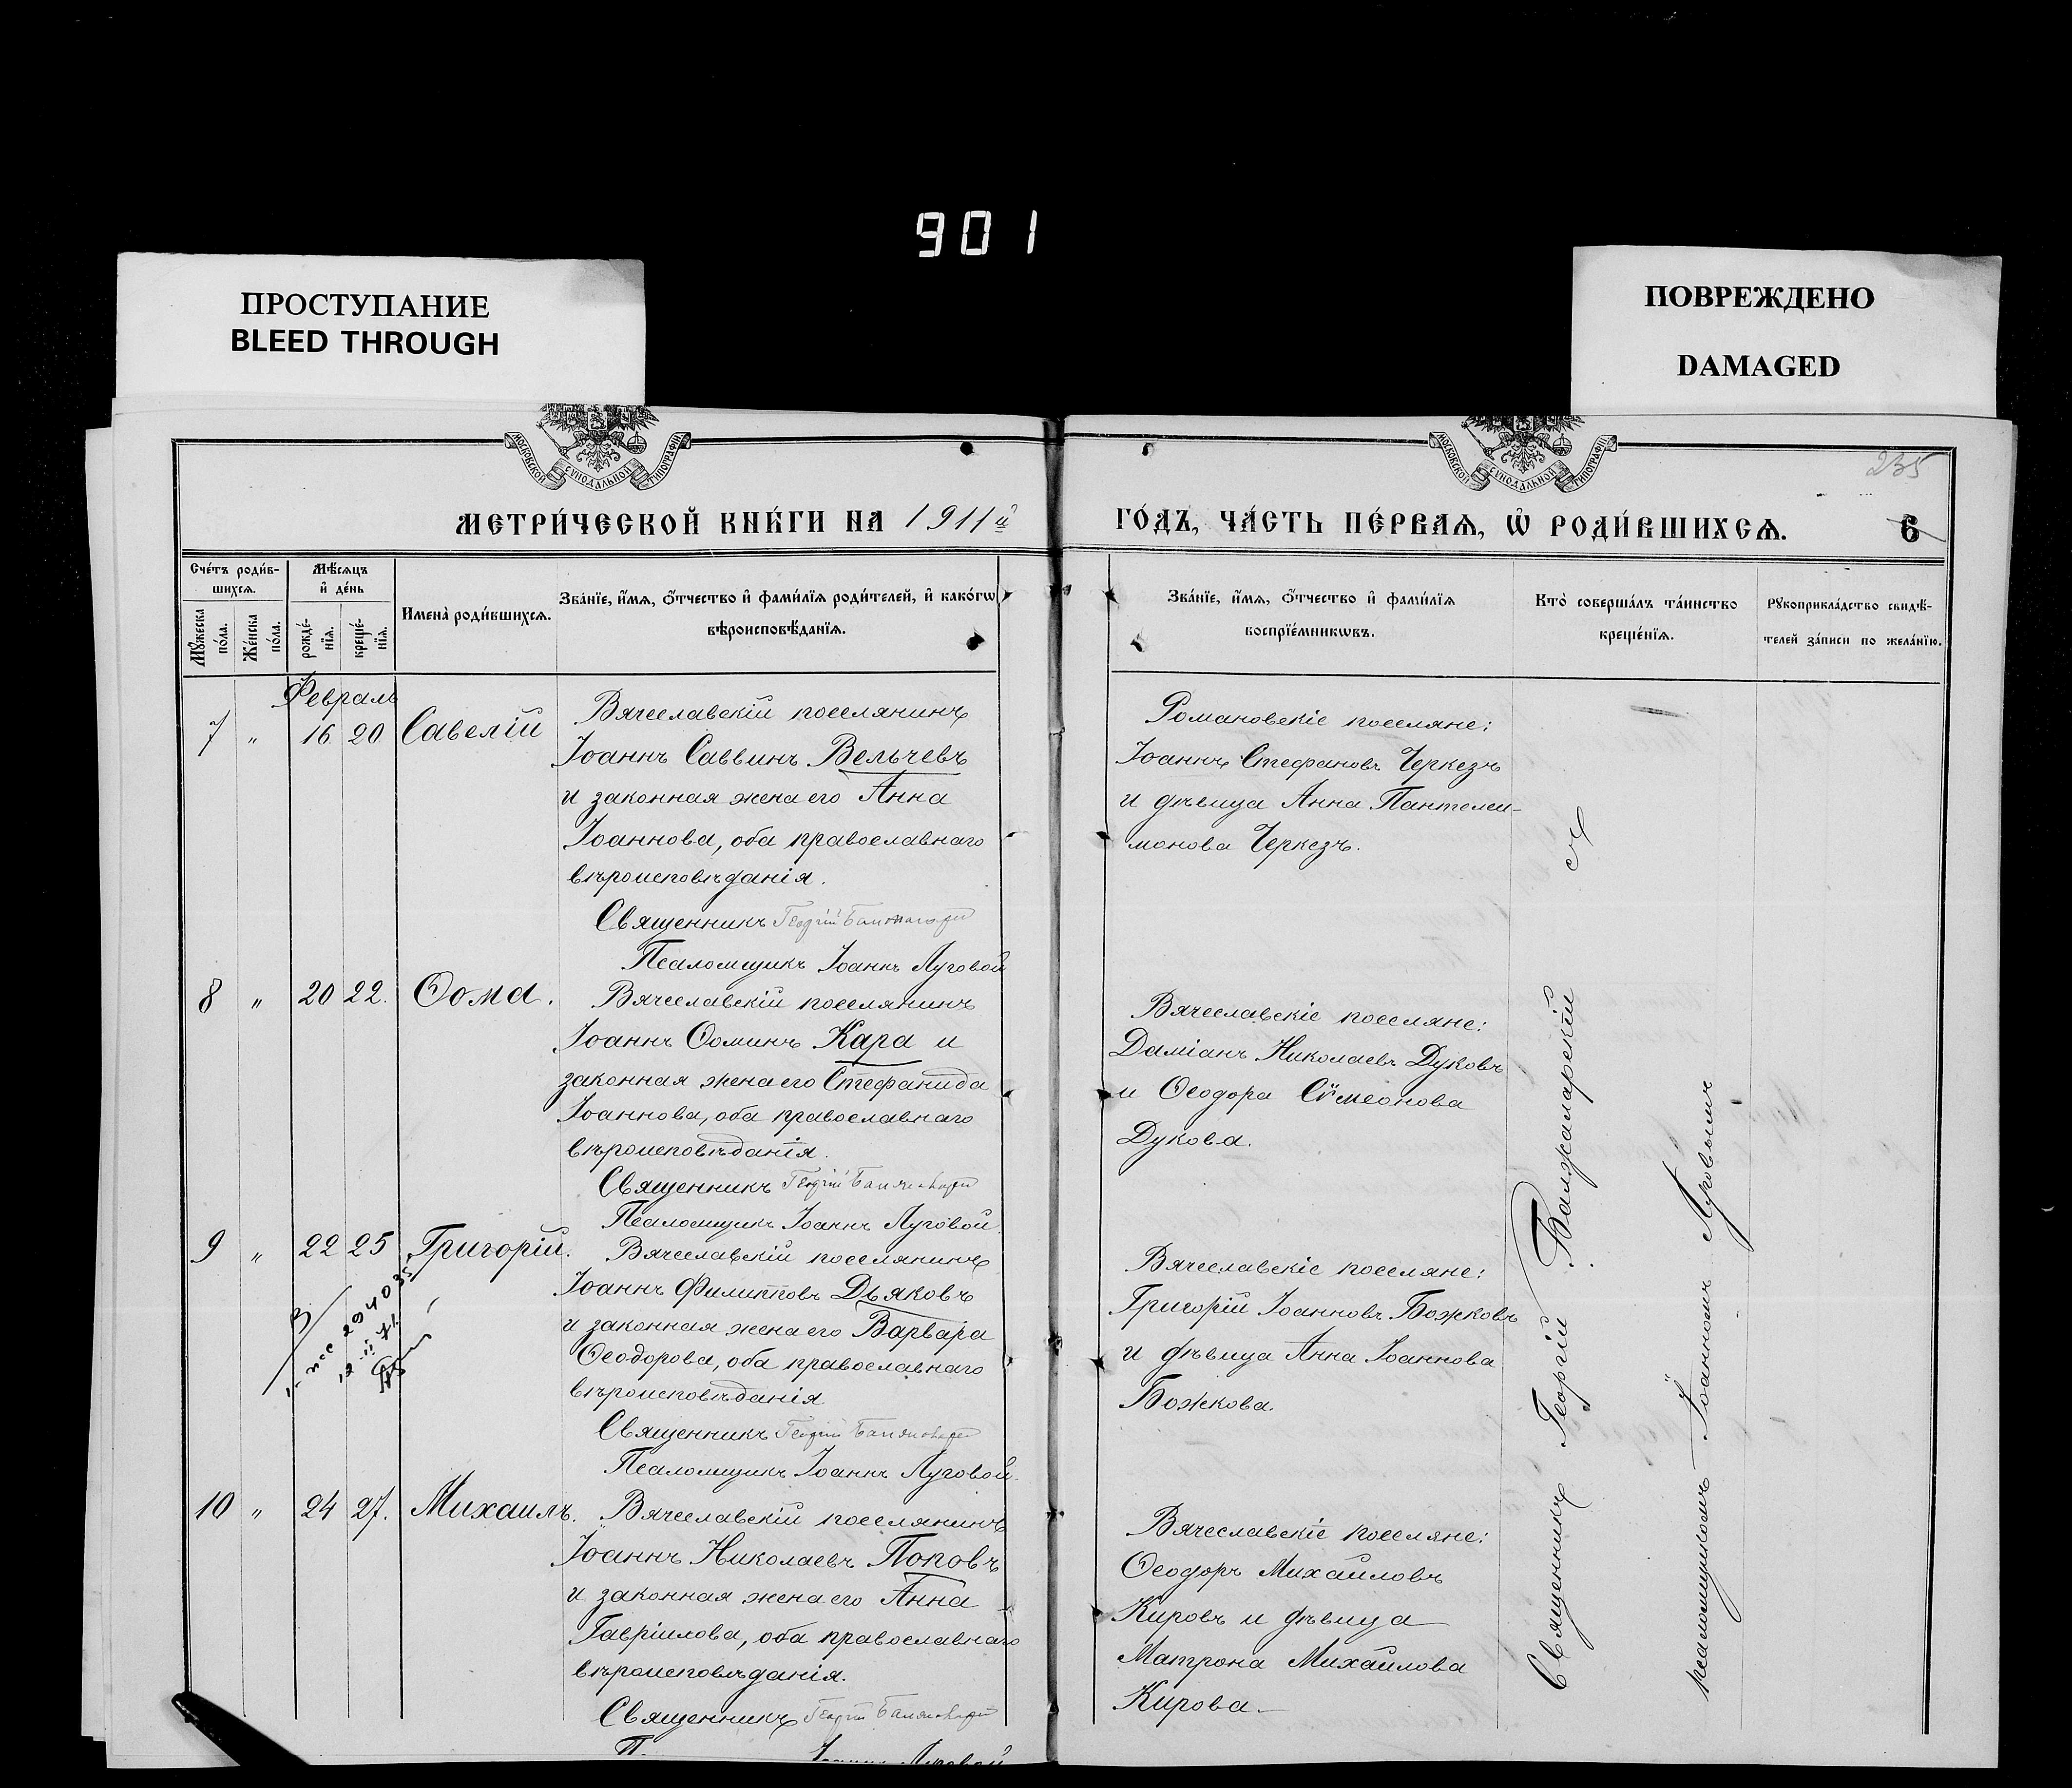 901
ПРОСТУПАНИЕ
BLEED THROUGH
ПОВРЕЖДЕНО
DAMAGED
МОСКОВСКОЙ СѴНОДАЛЬНОЙ ТИПОГРАФІИ
МОСКОВСКОЙ СѴНОДАЛЬНОЙ ТИПОГРАФІИ
235
МЕТРИ́ЧЕСКОЙ КНИ́ГИ НА 1911й
ГО́ДЪ, ЧА́СТЬ ПЕ́РВАѦ, Ѡ҆ РОДИ́ВШИХСѦ.
6
Сче́тъ роди́в-
шихсѧ.
Мꙋ́жеска по́ла.
Же́нска по́ла.
Мѣ́сѧцъ
и҆ де́нь
рожде́-
нїѧ.
креще́-
нїѧ.
Имена̀ роди́вшихсѧ.
Зва́нїе, и҆́мѧ, ѻ҆́тчество и҆ фами́лїѧ роди́телей, и҆ како́гѡ
вѣроисповѣ́данїѧ.
Зва́нїе, и҆́мѧ, ѻ҆́тчество и҆ фами́лїѧ
воспрїе́мникѡвъ.
Кто̀ соверша́лъ та́инство
креще́нїѧ.
Рꙋкоприкла́дство свидѣ́-
телей за́писи по жела́нїю.
Февраль
7 " 16 20 Савелій
Вячеславскій поселянинъ
Іоаннъ Саввинъ Вельчевъ
и законная жена его Анна
Іоаннова, оба православнаго
вѣроисповѣданія.
Священникъ Георгій
Псаломщикъ Іоаннъ Луговой
Романовскіе поселяне:
Іоаннъ Стефановъ Черкезъ
и дѣвица Анна Пантелеи-
монова Черкезъ.
8 " 20 22. Ѳома.
Вячеславскій поселянинъ
Іоаннъ Ѳоминъ Кара и
законная жена его Стефанида
Іоаннова, оба православнаго
вѣроисповѣданія.
Священникъ Георгій
Псаломщикъ Іоаннъ Луговой
Вячеславскіе поселяне:
Даміанъ Николаевъ Дуковъ
и Ѳеодора Сѵмеонова
Дукова.
9 " 22 25 Григорій.
Вячеславскій поселянинъ
Іоаннъ Филипповъ Дьяковъ
и законная жена его Варвара
Ѳеодорова, оба православнаго
вѣроисповѣданія
Священникъ Георгій
Псаломщикъ Іоаннъ Луговой.
Вячеславскіе поселяне:
Григорій Іоанновъ Божковъ
и дѣвица Анна Іоаннова
Божкова.
10 " 24 27. Михаилъ.
Вячеславскій поселянинъ
Іоаннъ Николаевъ Поповъ
и законная жена его Анна
Гавріилова, оба православнаго
вѣроисповѣданія.
Священникъ Георгій
Іоаннъ Луговой
Вячеславскіе поселяне:
Ѳеодоръ Михаиловъ
Кировъ и дѣвица
Матрона Михаилова
Кирова.
Священникъ Георгій Балжаларскій съ
псаломщикомъ Іоанномъ Луговымъ